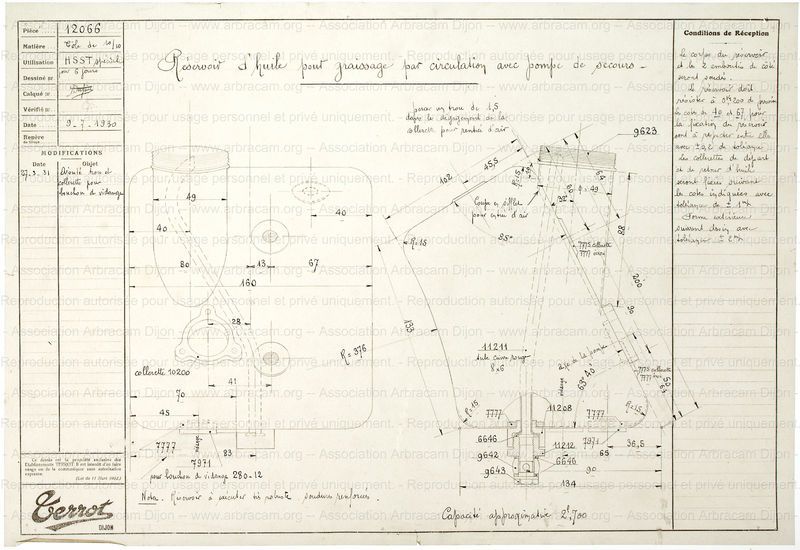 Pièce 12066
Matière Tôle de 10/10
Utilisation HSST spécial
pour 6 jours
Dessiné par
Calqué par
Vérifié par
Date 9-7-1930
Repère
MODIFICATIONS
Date Objet
27.3.31
collerette pour
bouchon de vidange
Ce dessin est la propriété exclusive des
Etablissements TERROT. Il est interdit d'en faire
usage ou de le communiquer sans autorisation
expresse.
(Loi du 11 Mars 1902.)
Terrot
DIJON
Réservoir d'huile pour graissage par circulation avec pompe de secours.
percer un trou de 1,5
dans le dégagement de la
collerette pour rentrée d'air
9623
49
40
40
80
13
67
160
28
R=376
collerette 10200
41
70
45
7777
vidange
7971
83
pour bouchon de vidange 280-12
Nota. Réservoir à exécuter très robuste soudures renforcées.
102
45,5
R=15
64
49
32
88
Coupe en sifflet
pour entrée d'air
85
R=15
7775 collerette
7777
200
133
30
11211
tube cuivre rouge
8x6
axe de la pompe
63° 40'
vidange
7775 collerette
7777
R=15
R=15
7777
11208
7777
6646
11212
7971
36,5
9642
6646
65
9643
90
134
Capacité approximative 2l,700
Conditions de Réception
Le corps du réservoir
et les 2 emboutis de côté
seront soudés.
Le réservoir doit
résister à 0kg200 de pression
les cotes de 70 et 67 pour
la fixation du réservoir
sont à respecter entre elles
avec ± 0,2 de tolérance
Les collerettes de départ
et de retour d'huile
seront fixées suivant
les cotes indiquées avec
tolérance de ± 1
Forme extérieure
suivant dessin avec
tolérance ± 2
Reproduction autorisée pour usage personnel et privé uniquement. - Association Arbracam Dijon - www.arbracam.org